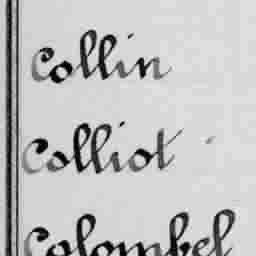 Collin
Colliot
Colombel